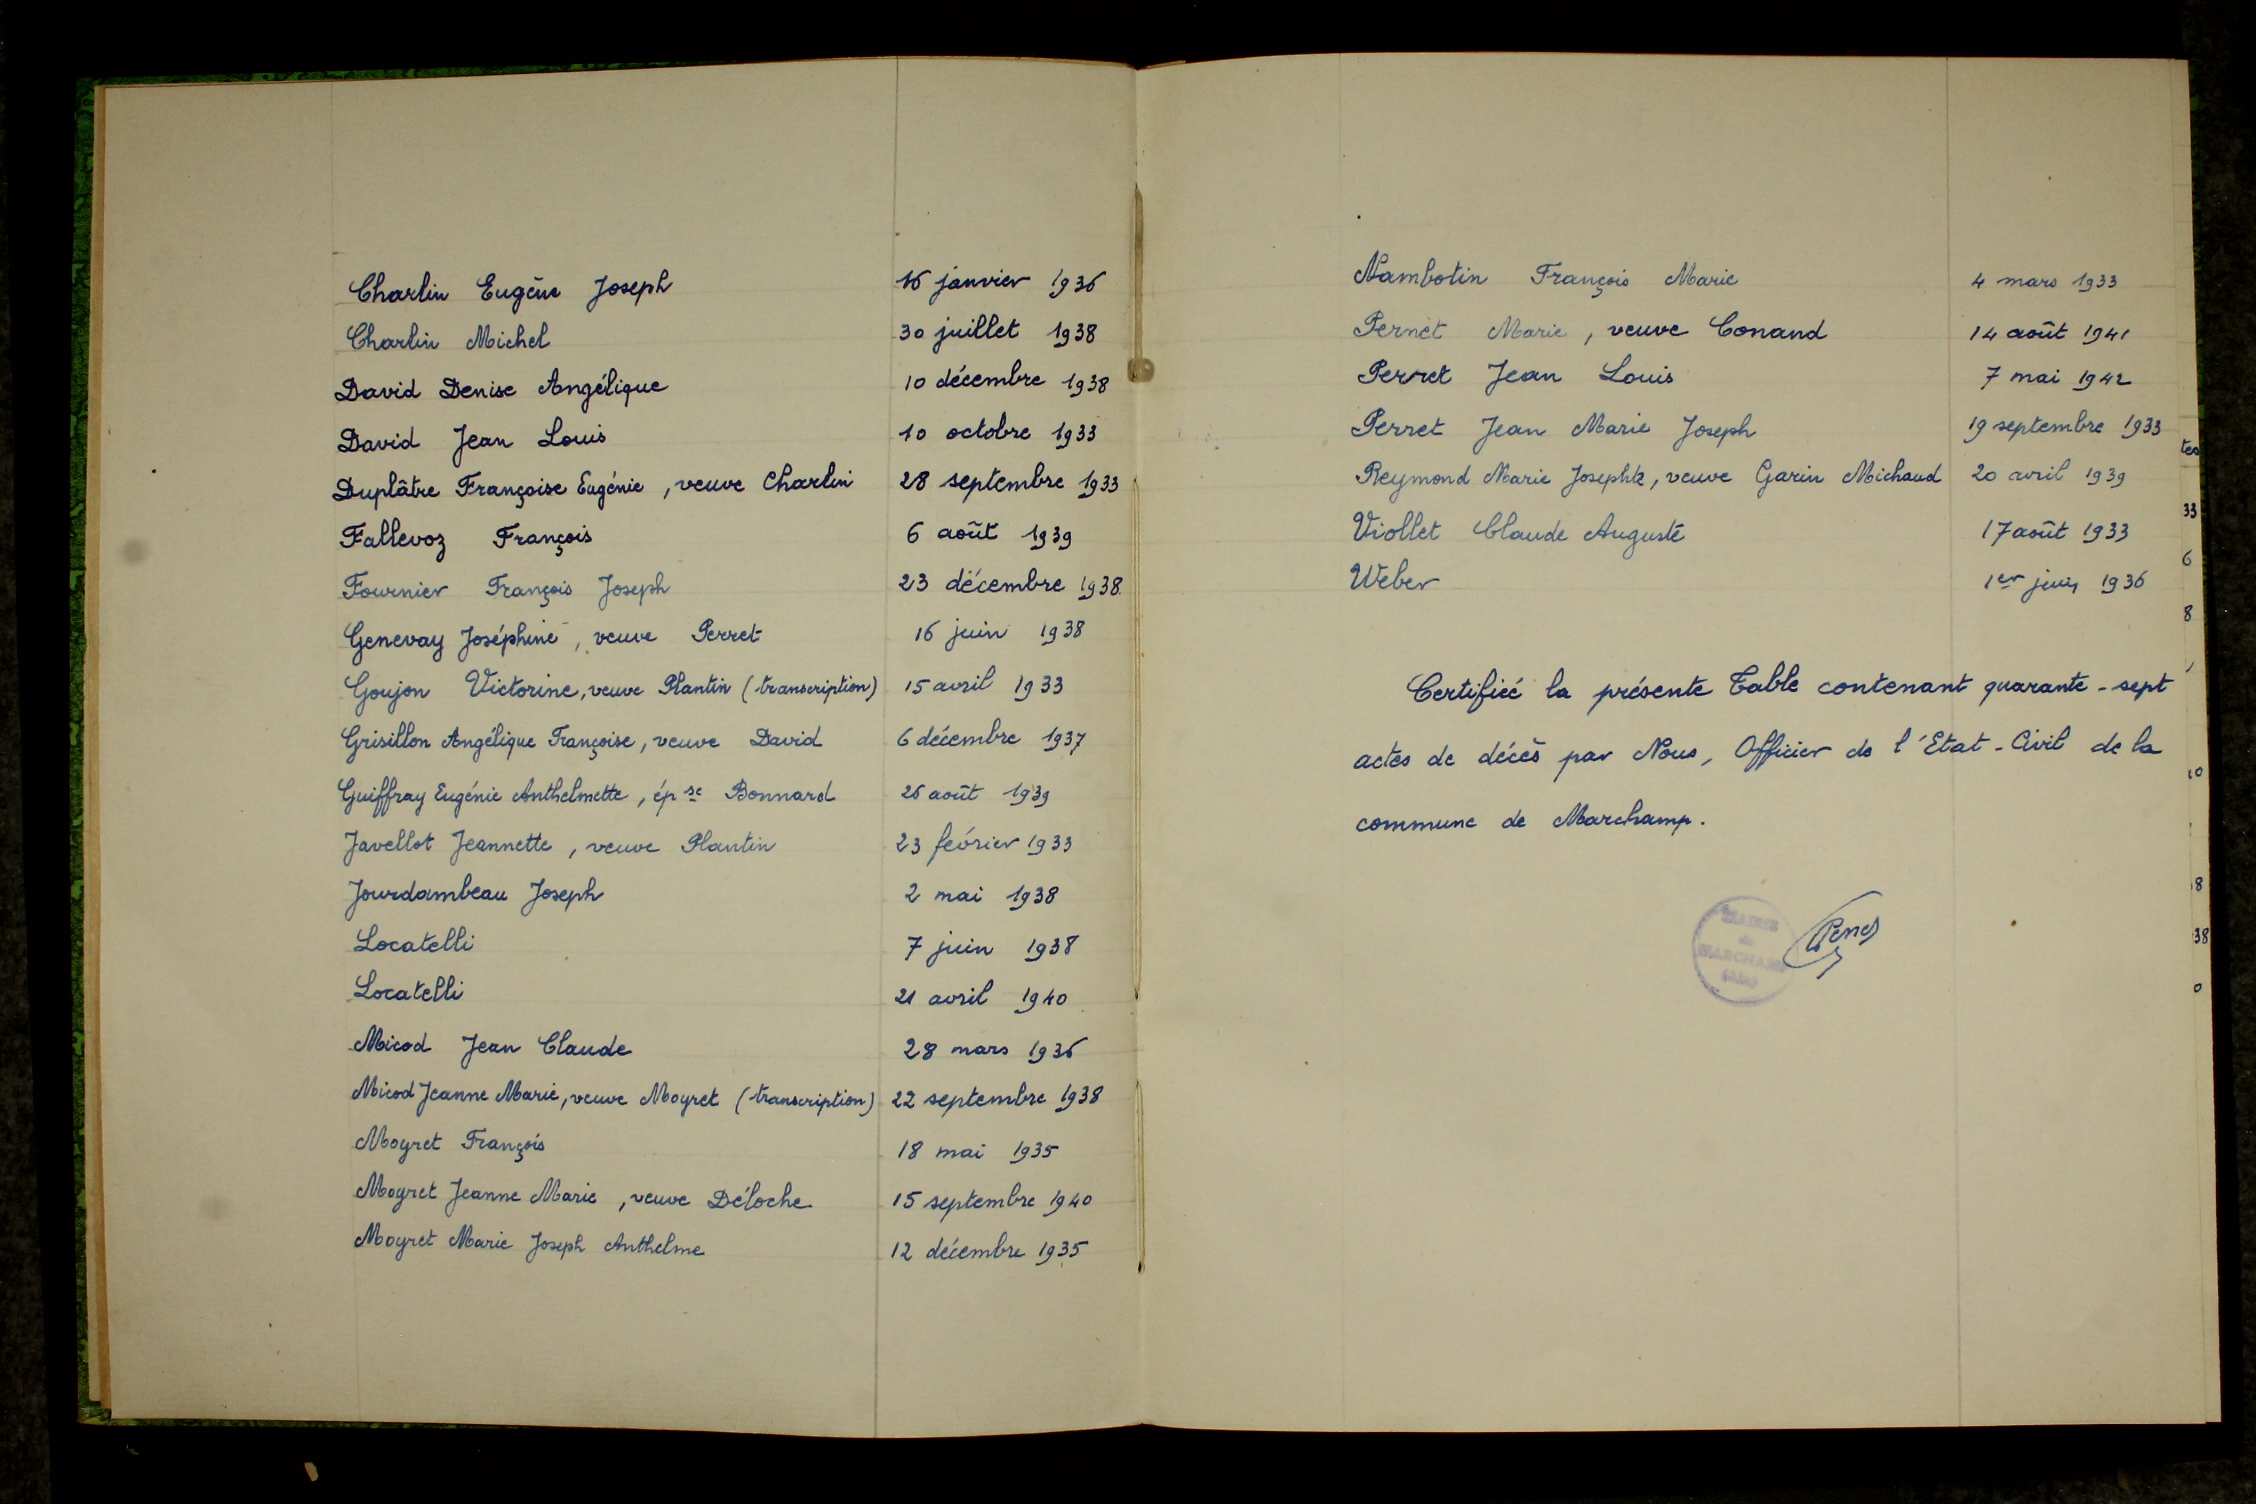 Charlin Eugène Joseph 16 janvier 1936
Charlin Michel 30 juillet 1938
David Denise Angélique 10 décembre 1938
David Jean Louis 10 octobre 1933
Duplâtre Françoise Eugénie, veuve Charlin 28 septembre 1933
Fallevoz François 6 août 1939
Fournier François Joseph 23 décembre 1938
Genevay Joséphine, veuve Perret 16 juin 1938
Goujon Victorine, veuve Plantin (transcription) 15 avril 1933
Grisillon Angélique Françoise, veuve David 6 décembre 1937
Guiffray Eugénie Anthelmette, épse Bonnard 26 août 1939
Javellot Jeannette, veuve Plantin 23 février 1933
Jourdambeau Joseph 2 mai 1938
Locatelli 7 juin 1938
Locatelli 21 avril 1940
Micod Jean Claude 28 mars 1936
Micod Jeanne Marie, veuve Moyret (transcription) 22 septembre 1938
Moyret François 18 mai 1935
Moyret Jeanne Marie, veuve Déloche 15 septembre 1940
Moyret Marie Joseph Anthelme 12 décembre 1935
Nambotin François Marie 4 mars 1933
Pernet Marie, veuve Conand 14 août 1941
Perret Jean Louis 7 mai 1942
Perret Jean Marie Joseph 19 septembre 1933
Reymond Marie Josephte, veuve Garin Michaud 20 avril 1939
Viollet Claude Auguste 17 août 1933
Weber 1er juin 1936
Certifiée la présente Table contenant quarante-sept
actes de décès par Nous, Officier de l'Etat-Civil de la
commune de Marchamp.
MAIRIE
de
MARCHAMP
tes
33
6
8
10
8
38
0